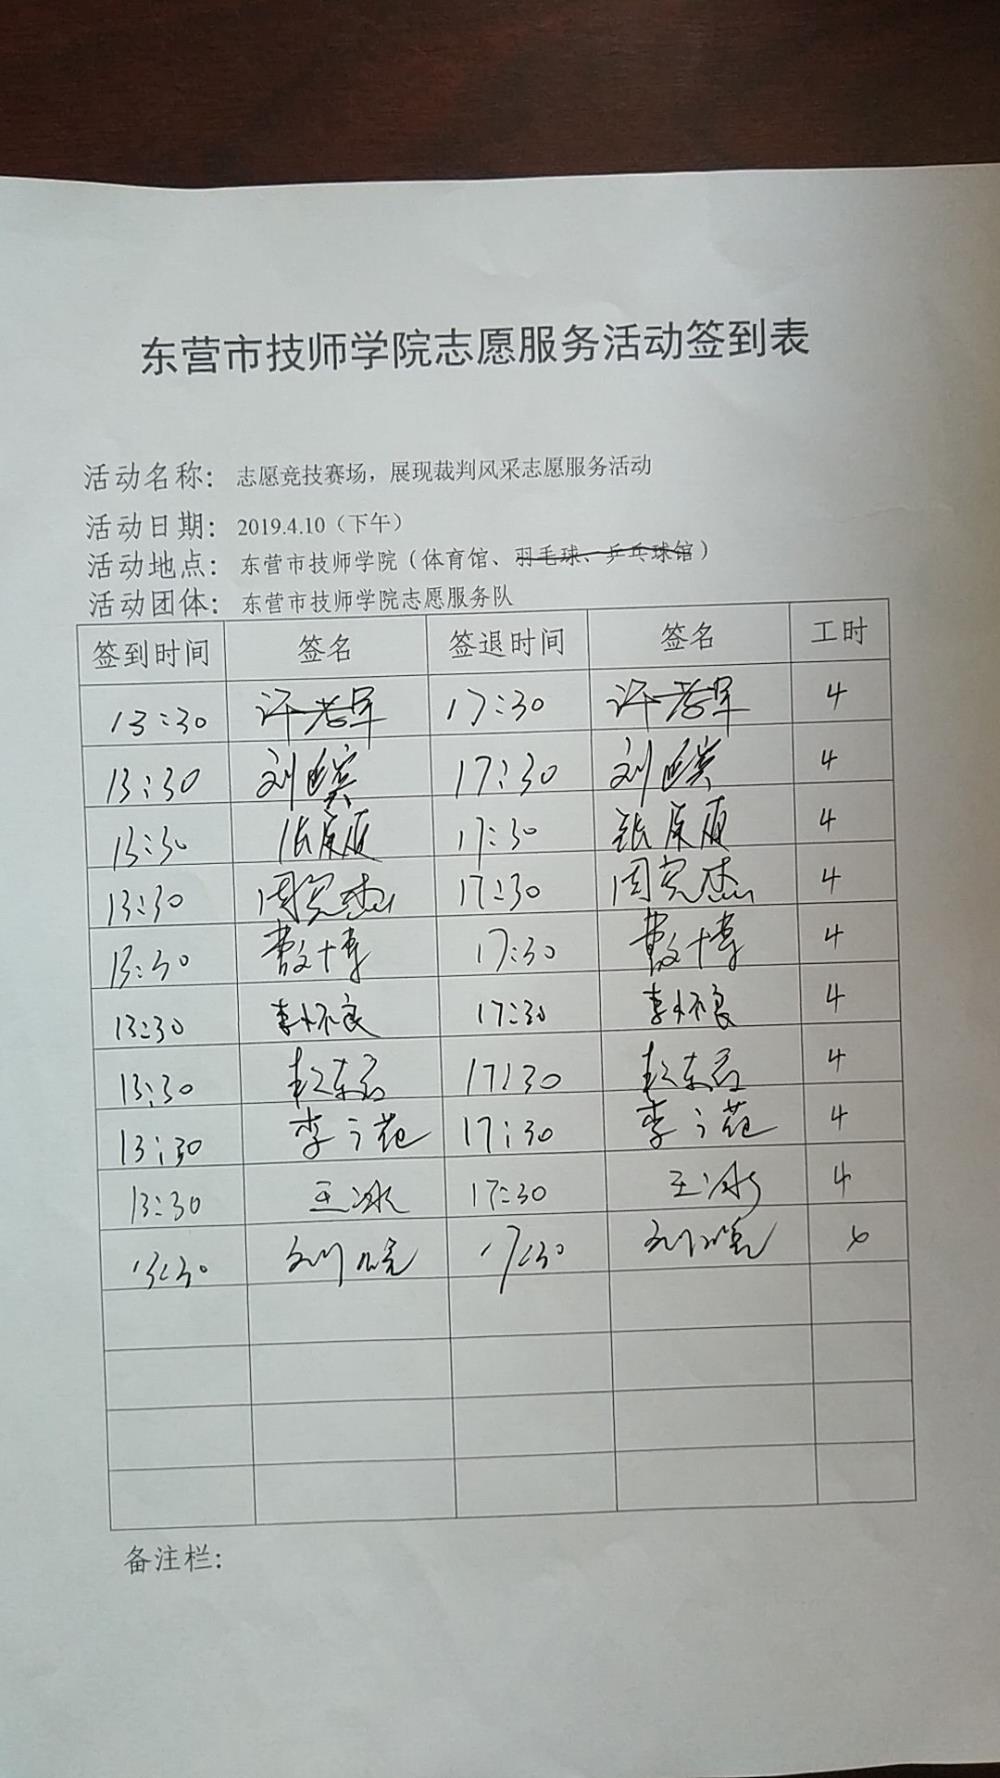 东营市技师学院志愿服务活动签到表
活动名称： 志愿竞技赛场，展现裁判风采志愿服务活动
活动日期： 2019.4.10（下午）
活动地点： 东营市技师学院（体育馆、羽毛球、乒乓球馆）
活动团体： 东营市技师学院志愿服务队
签到时间 签名 签退时间 签名 工时
13:30 17:30 4
13:30 刘 17:30 刘 4
13:30 张 17:30 张 4
13:30 周宪杰 17:30 周宪杰 4
13:30 17:30 4
13:30 李怀良 17:30 李怀良 4
13:30 赵东君 17:30 赵东君 4
13:30 李 17:30 李 4
13:30 王冰 17:30 王冰 4
13:30 刘 17:30 刘
备注栏：